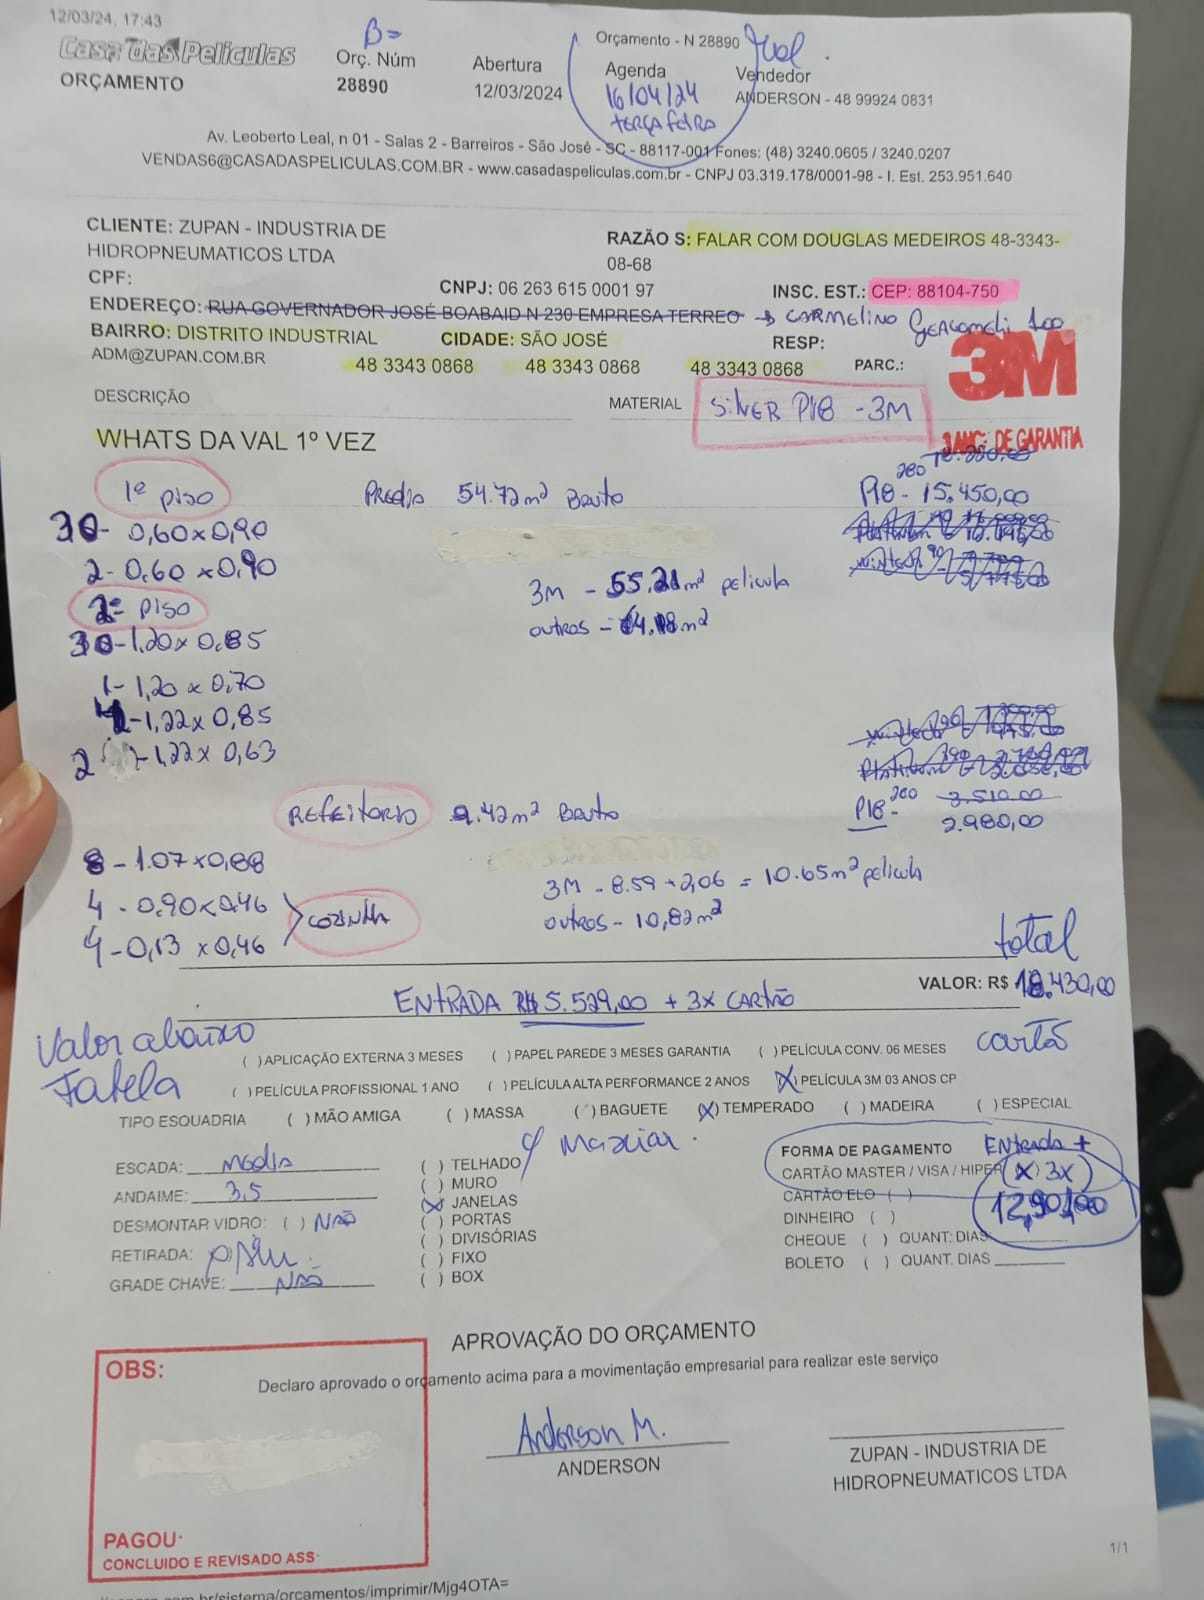 12/03/24, 17:43
Orçamento - N 28890
B=
Casa das Películas
ORÇAMENTO
Orç. Núm
28890
Abertura
12/03/2024
Agenda
16/04/24
TERÇA FEIRA
Val.
Vendedor
ANDERSON - 48 99924 0831
Av. Leoberto Leal, n 01 - Salas 2 - Barreiros - São José - SC - 88117-001 Fones: (48) 3240.0605 / 3240.0207
VENDAS6@CASADASPELICULAS.COM.BR - www.casadaspeliculas.com.br - CNPJ 03.319.178/0001-98 - I. Est. 253.951.640
CLIENTE: ZUPAN - INDUSTRIA DE
HIDROPNEUMATICOS LTDA
RAZÃO S: FALAR COM DOUGLAS MEDEIROS 48-3343-
08-68
CPF:
CNPJ: 06 263 615 0001 97
INSC. EST.: CEP: 88104-750
ENDEREÇO: RUA GOVERNADOR JOSÉ BOABAID N 230 EMPRESA TERREO → CARMELINO 100
BAIRRO: DISTRITO INDUSTRIAL
CIDADE: SÃO JOSÉ
RESP:
ADM@ZUPAN.COM.BR
48 3343 0868
48 3343 0868
48 3343 0868
PARC.:
3M
3 ANOS DE GARANTIA
DESCRIÇÃO
MATERIAL
SILVER P18 - 3M
WHATS DA VAL 1º VEZ
1º PISO
Predio 54.72m² Bruto
280
P18 - 15.450,00
30 - 0,60x0,90
2 - 0,60 x 0,90
3M - 55.21m² pelicula
2º PISO
outros - 64.18m²
30 - 1,20 x 0,85
1 - 1,20 x 0,70
4 - 1,22 x 0,85
2 - 1,22 x 0,63
REFEITORIO 9.42m² Bruto
P18 - 280 3.510,00
2.980,00
8 - 1.07x0,88
3M - 8.59 + 2,06 = 10.65m² pelicula
4 - 0,90x0,46
COZINHA
outros - 10,82m²
4 - 0,13 x 0,46
total
VALOR: R$ 18.430,00
ENTRADA R$ 5.529,00 + 3X CARTÃO
Valor abaixo
Tabela
cartão
( ) APLICAÇÃO EXTERNA 3 MESES ( ) PAPEL PAREDE 3 MESES GARANTIA ( ) PELÍCULA CONV. 06 MESES
( ) PELÍCULA PROFISSIONAL 1 ANO ( ) PELÍCULA ALTA PERFORMANCE 2 ANOS (X) PELÍCULA 3M 03 ANOS CP
TIPO ESQUADRIA ( ) MÃO AMIGA ( ) MASSA ( ) BAGUETE (X) TEMPERADO ( ) MADEIRA ( ) ESPECIAL
c/ Maxiar.
ESCADA: Media
ANDAIME: 3,5
DESMONTAR VIDRO: ( ) NÃO
RETIRADA:
GRADE CHAVE: NÃO
( ) TELHADO
( ) MURO
(X) JANELAS
( ) PORTAS
( ) DIVISÓRIAS
( ) FIXO
( ) BOX
FORMA DE PAGAMENTO Entrada +
CARTÃO MASTER / VISA / HIPER (X) 3X
CARTÃO ELO ( )
12,901,00
DINHEIRO ( )
CHEQUE ( ) QUANT. DIAS
BOLETO ( ) QUANT. DIAS
APROVAÇÃO DO ORÇAMENTO
Declaro aprovado o orçamento acima para a movimentação empresarial para realizar este serviço
OBS:
Anderson M.
ANDERSON
ZUPAN - INDUSTRIA DE
HIDROPNEUMATICOS LTDA
PAGOU:
CONCLUIDO E REVISADO ASS:
1/1
br/sistema/orcamentos/imprimir/Mjg4OTA=